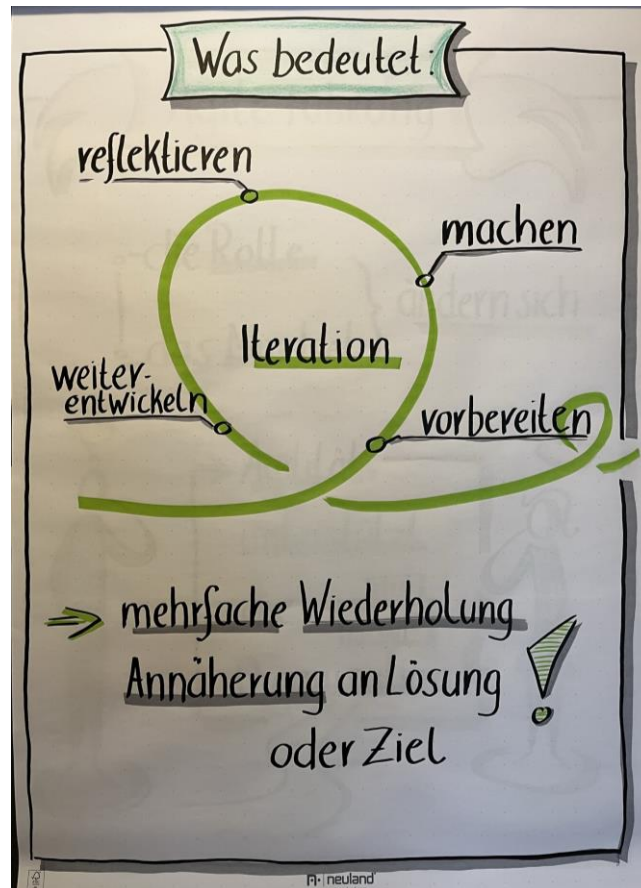 Was bedeutet:
reflektieren
machen
Iteration
weiter-
entwickeln
vorbereiten
mehrfache Wiederholung
Annäherung an Lösung
oder Ziel
!
neuland